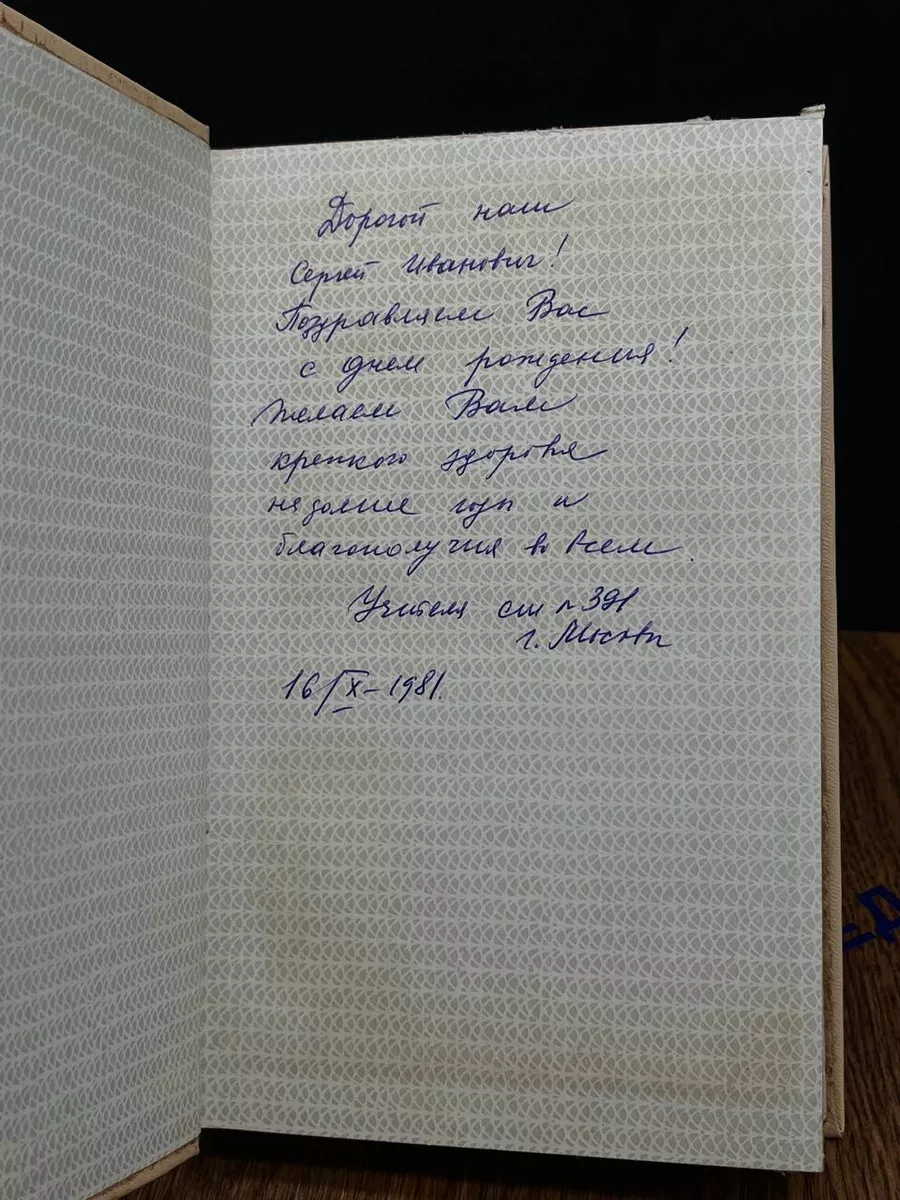 Дорогой наш
Сергей Иванович!
Поздравляем Вас
с днем рождения!
Желаем Вам
крепкого здоровья
на долгие годы и
благополучия во всем.
Учителя сш № 391
г. Москвы
16/IX-1981.